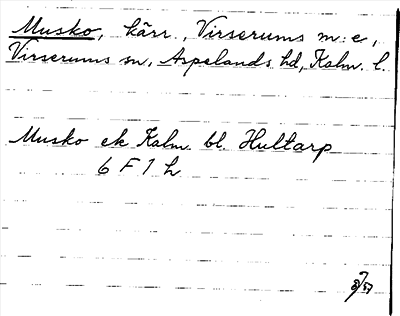 Musko, kärr, Virserums m:e,
Virserums sn, Aspelands hd, Kalm. l.
Musko ek Kalm. bl. Hultarp
6 F 1 h